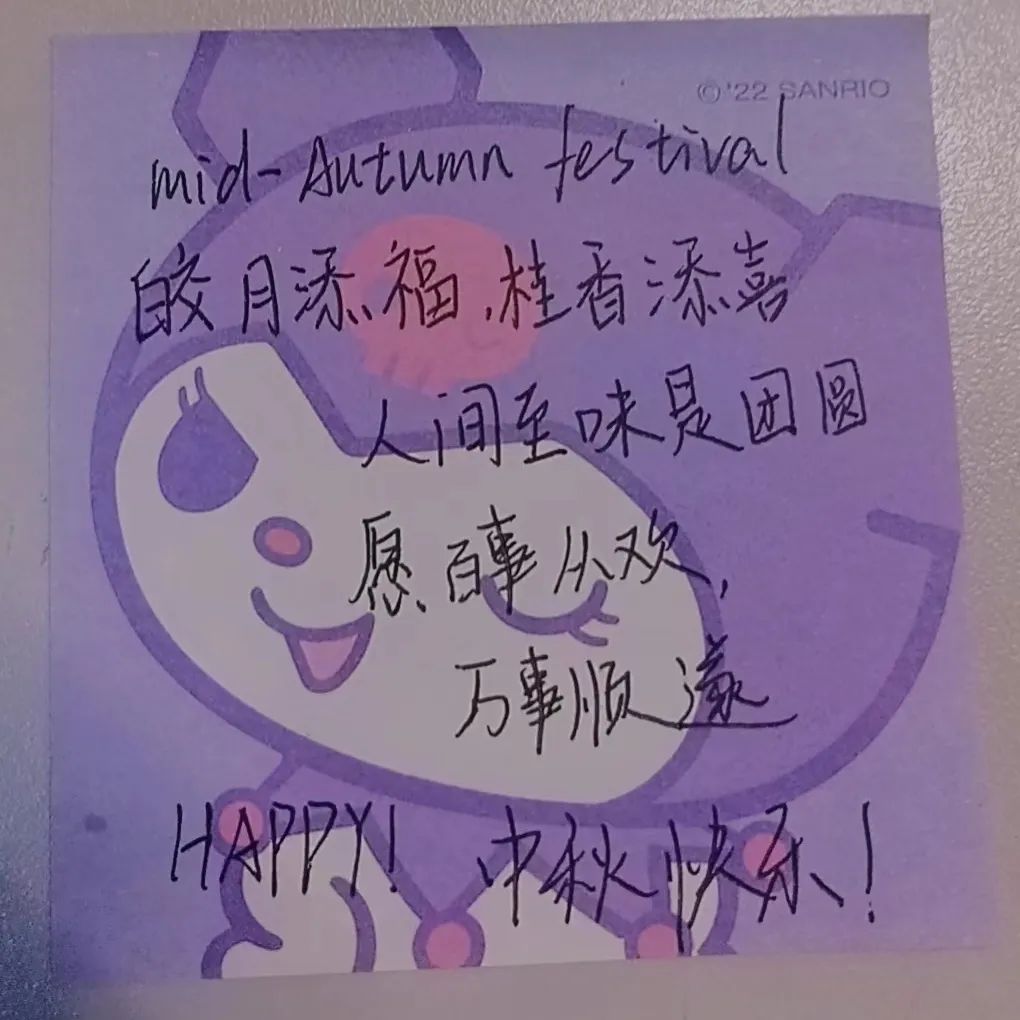 ©'22 SANRIO
mid-Autumn festival
皎月添福,桂香添喜
人间至味是团圆
愿百事从欢,
万事顺遂
HAPPY! 中秋快乐!